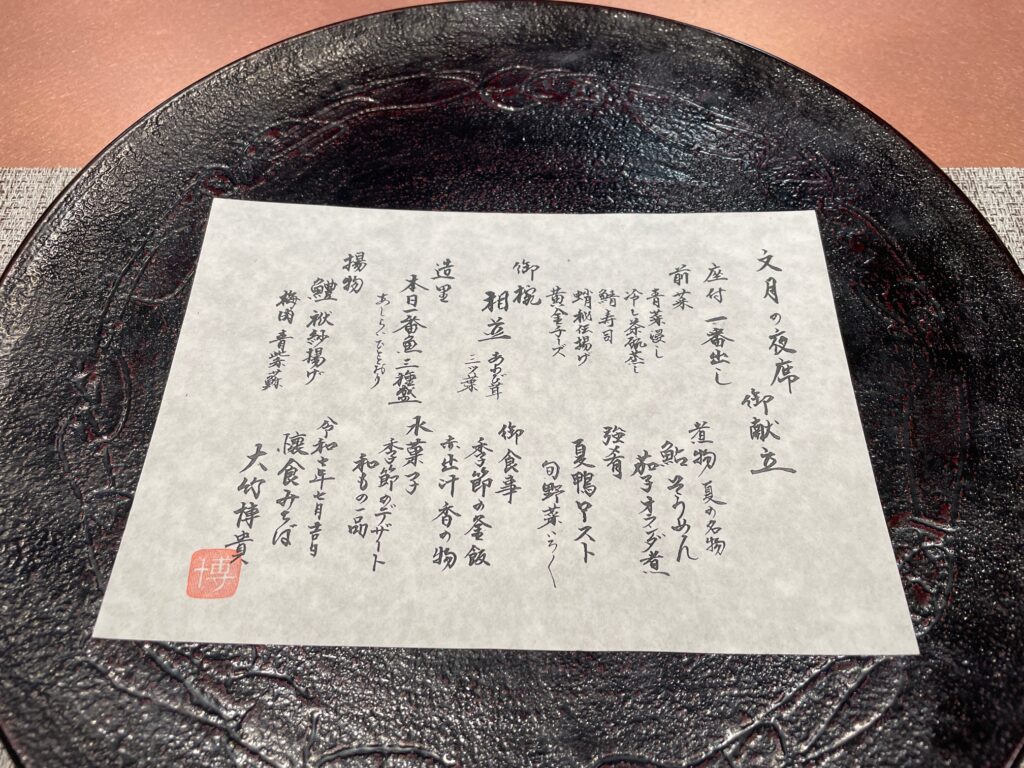 文月の夜席
御献立
座付 一番出し
前菜
青菜浸し
冷し茶碗蒸し
鯖寿司
蛸利休揚げ
黄金チーズ
御椀
相並
あわび茸
三ツ葉
造里
本日一番魚三種盛
あしらいひととおり
揚物
鱧袱紗揚げ
梅肉 青紫蘇
煮物 夏の名物
鮎そうめん
茄子オランダ煮
強肴
夏鴨ロースト
旬野菜いろ〱
御食事
季節の釜飯
赤出汁 香の物
水菓子
季節のデザート
和もの一品
令和七年七月吉日
懐食みちば
大竹博貴
博